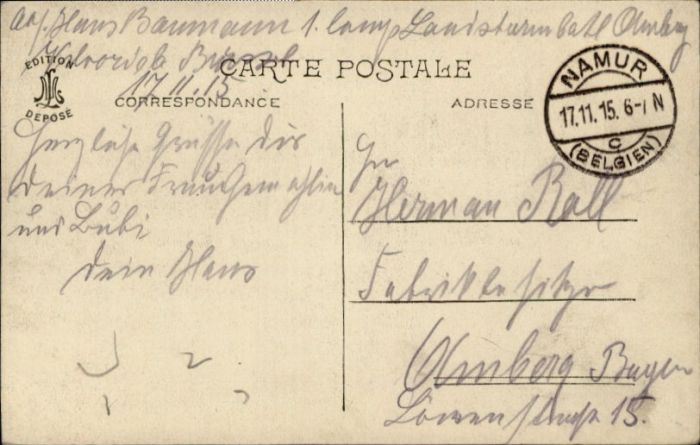 Hans Baumann 1. Comp Landsturmbatl Amberg
17.11.15
EDITION
DEPOSÉ
CARTE POSTALE
CORRESPONDANCE
ADRESSE
NAMUR
17.11.15. 6-7 N
C
(BELGIEN)
Herzliche Grüsse dir
deiner Frau Gemahlin
und Bubi
dein Hans
Herman Roll
Fabrikbesitzer
Amberg Bayern
Löwenstrasse 15.